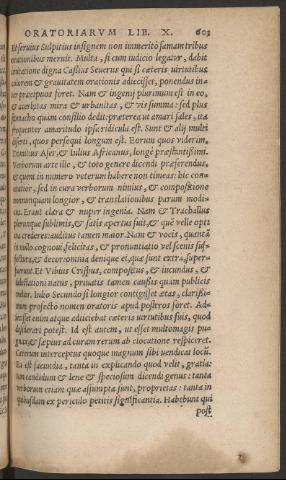 ORATORIARVM LIB. X. 603
Et Seruius Sulpitius insignem non immeritò famam tribus
orationibus meruit. Multa, si cum iudicio legatur, dabit
imitatione digna Cassius Seuerus qui si cæteris uirtutibus
colorem & grauitatem orationis adiecisset, ponendus in-
ter præcipuos foret. Nam & ingenij plurimum est in eo,
& acerbitas mira & urbanitas, & uis summa: sed plus
stomacho quàm consilio dedit: præterea ut amari sales, ita
frequenter amaritudo ipsa ridicula est. Sunt & alij multi
diserti, quos persequi longum est. Eorum quos uiderim,
Domitius Afer, & Iulius Africanus, longè præstantissimi.
Verborum arte ille, & toto genere dicendi præferendus,
& quem in numero ueterum habere non timeas: hic con-
citatior, sed in cura uerborum nimius, & compositione
nonnunquam longior, & translationibus parum modi-
cus. Erant clara & nuper ingenia. Nam & Trachallus
plerunque sublimis, & satis apertus fuit, & què uelle opti
ma crederes: auditus tamen maior. Nam & uocis, quantā
in nullo cognoui, felicitas, & pronuntiatio uel scenis suf-
fectura, & decor: omnia deniq̃ue ei, quæ sunt extra, super-
fuerunt. Et Vibius Crispus, compositus, & iucundus, &
delectationi natus, priuatis tamen causis quàm publicis
melior. Iulio Secundo si longior contigisset ætas, clarissi-
mum profectò nomen oratoris apud posteros foret. Ad-
iecisset enim atque adiiciebat cæteris uirtutibus suis, quod
desiderari potest. Id est autem, ut esset multo magis pu-
gnax, & sæpius ad curam rerum ab elocutione respiceret.
Cæterum interceptus quoque magnum sibi uendicat locū.
Ea est facundia, tanta in explicando quod uelit, gratia:
tam candidum & lene & speciosum dicendi genus: tanta
uerborum etiam quæ assumpta sunt, proprietas: tanta in
quibusdam ex periculo petitis significantia. Habebunt qui
post